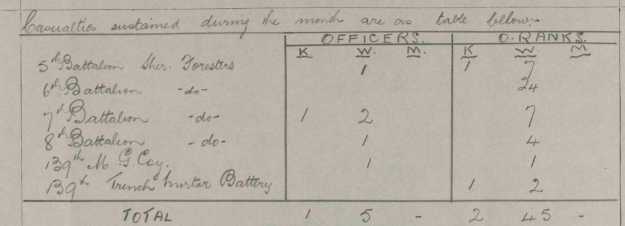 Casualties sustained during the month are as table below:-
OFFICERS. O. RANKS.
K W. M. K W M
5th Battalion Sher. Foresters 1 1 7
6th Battalion -do- 24
7th Battalion -do- 1 2 7
8th Battalion -do- 1 4
139th M. G. Coy. 1 1
139th Trench Mortar Battery 1 2
TOTAL 1 5 - 2 45 -